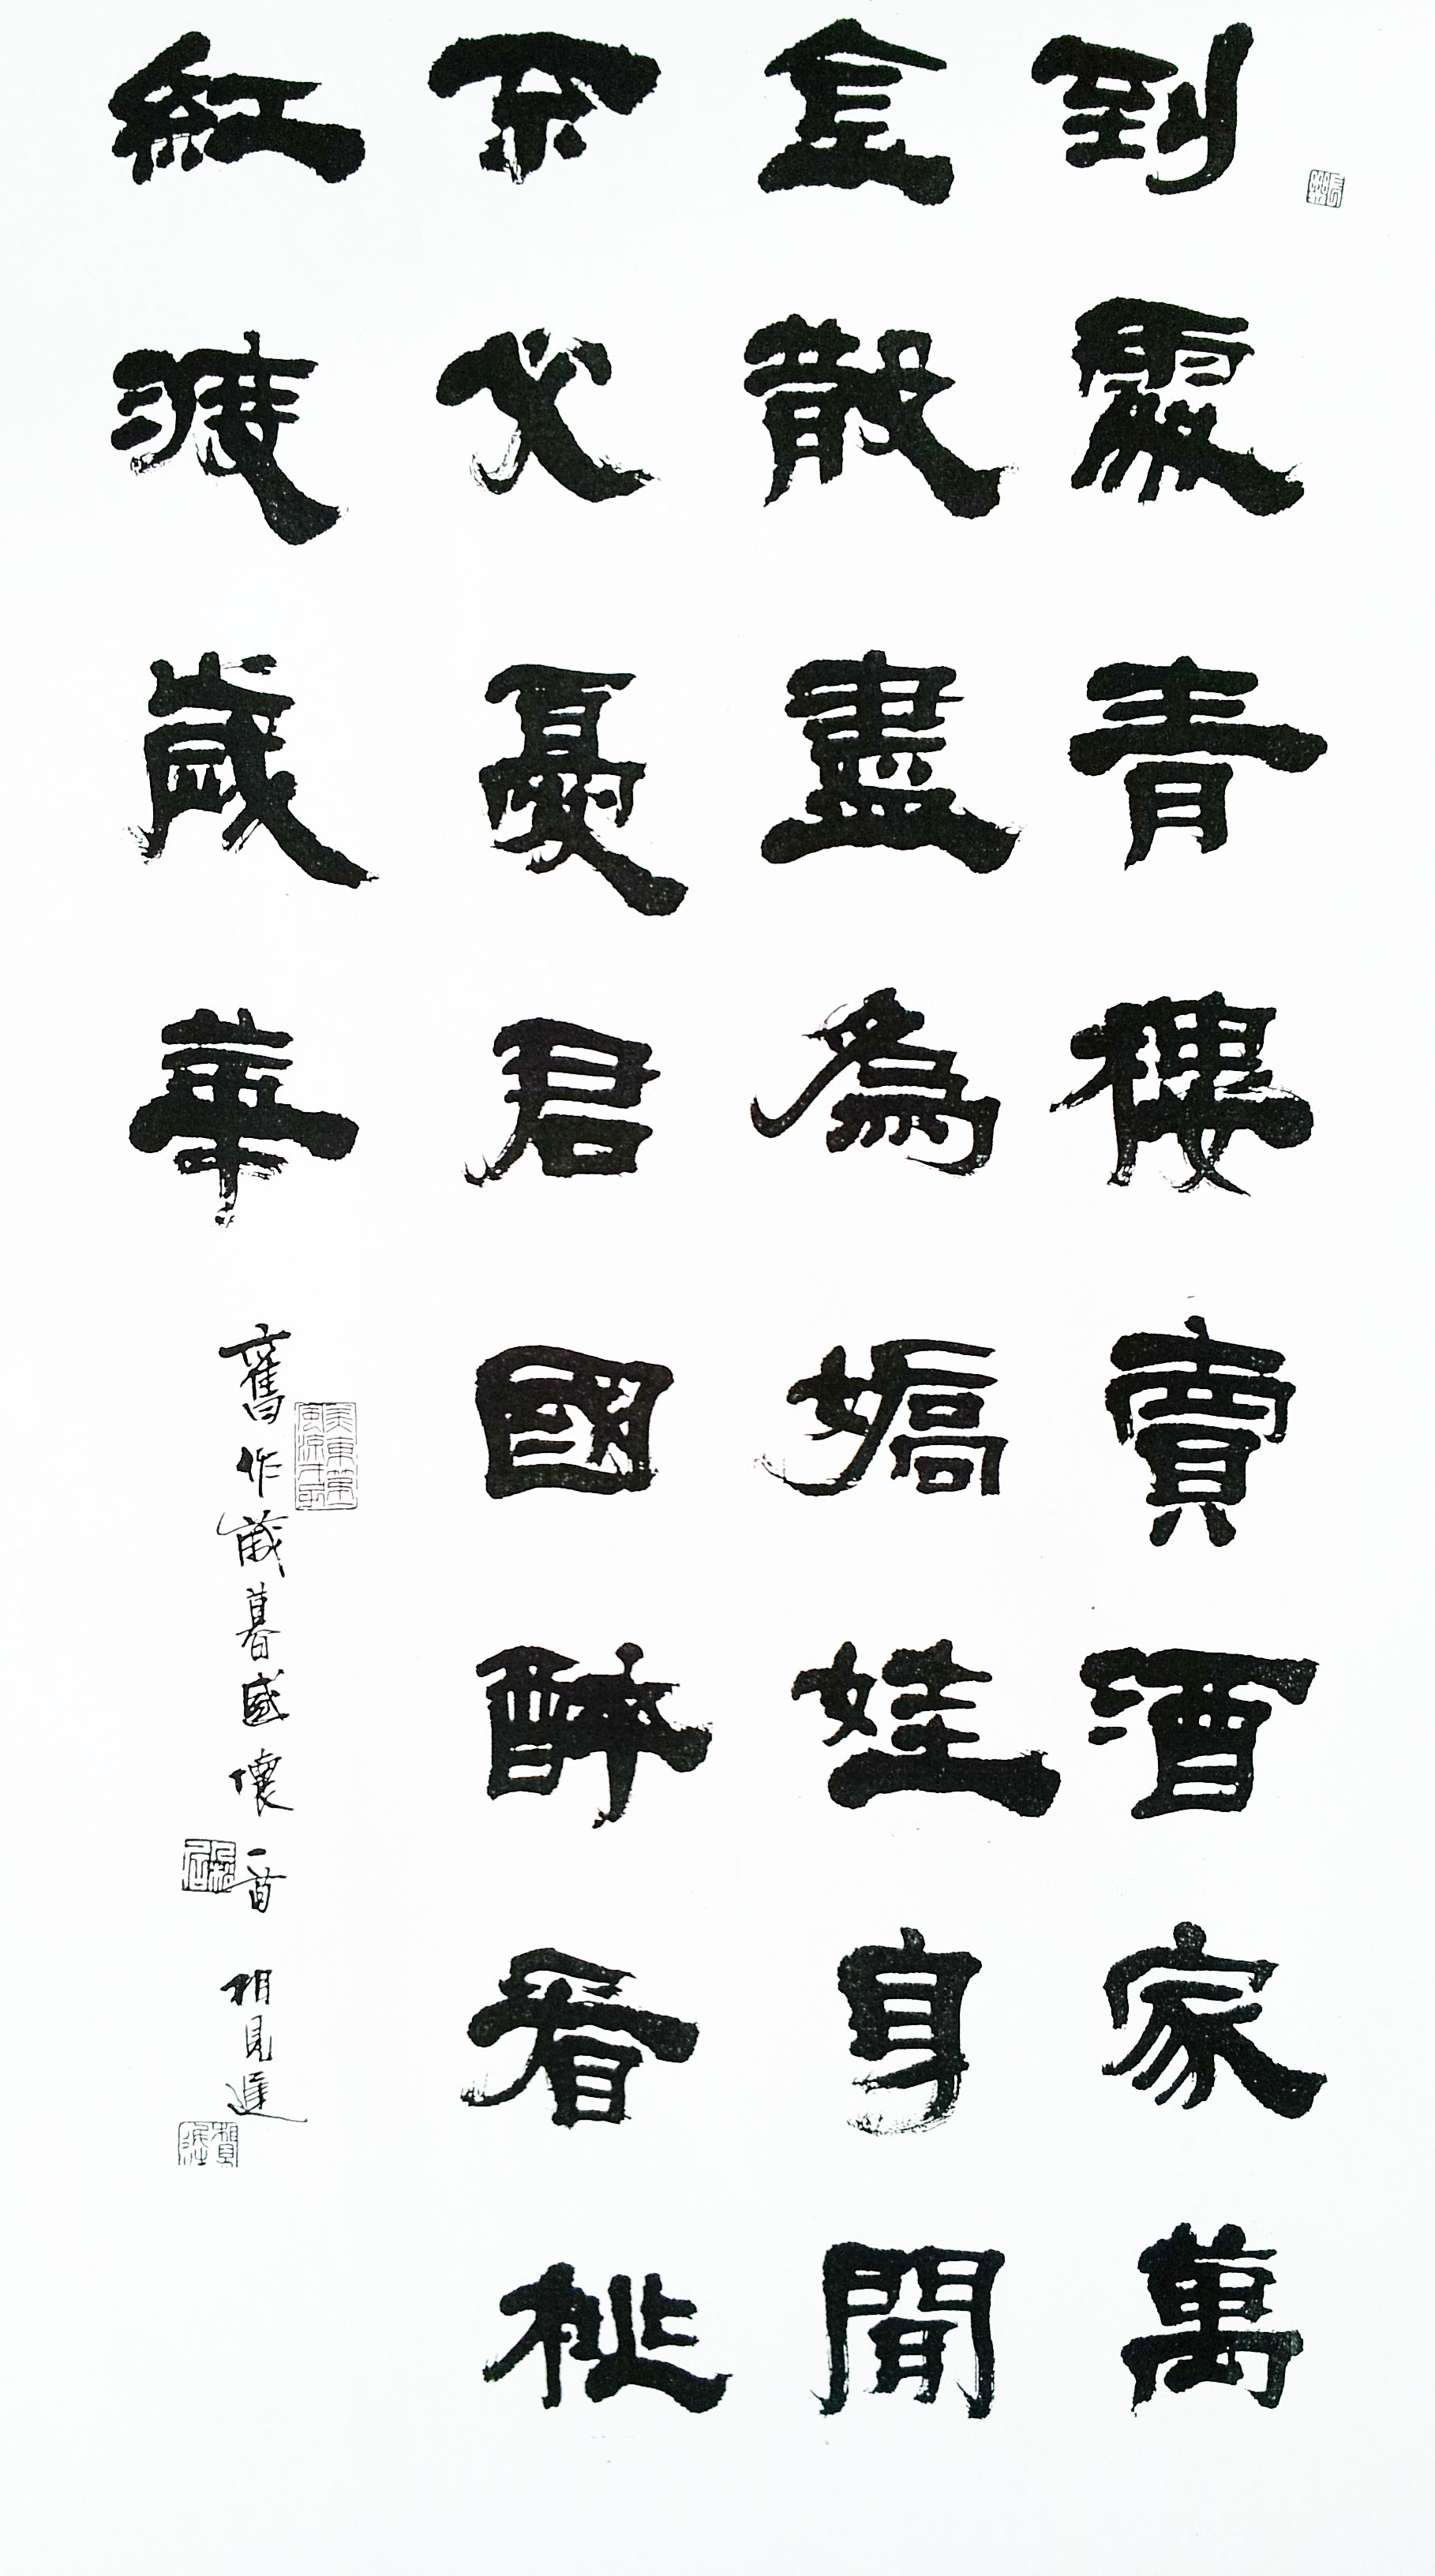 到處青樓賣酒家萬
金散盡為嬌娃身閒
不必憂君國醉看桃
紅渡歲華
舊作歲暮感懷一首 相見遲